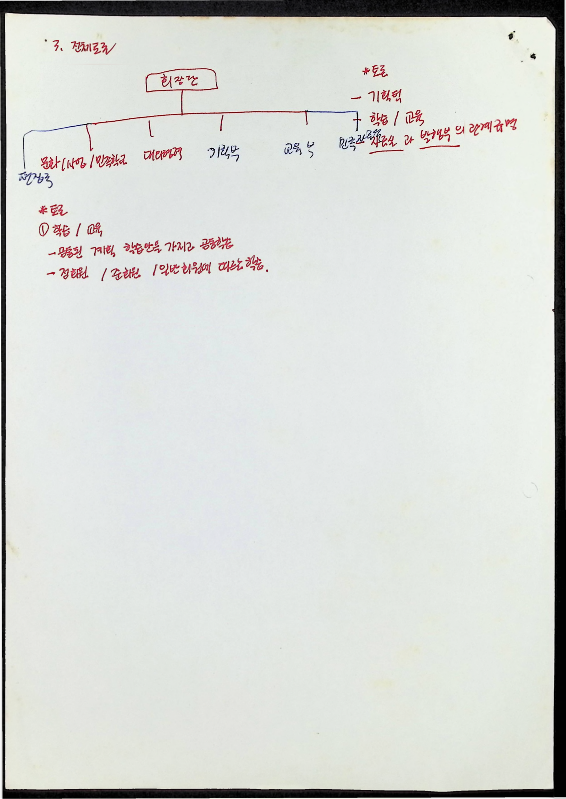 3. 전체토론
회장단
편집국
문화/사업/민족학교
대외협력
기획부
교육부
민족
*토론
- 기획력
- 학습 / 교육
- 과 의 관계규명
*토론
① 학습 / 교육
- 공통된 계획, 학습안을 가지고 공동학습
- 정회원 / 준회원 / 일반회원에 따르는 학습.